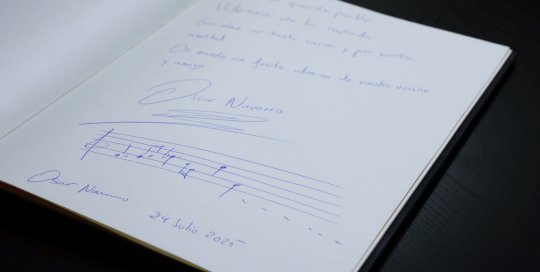 querido pueblo
Gracias por tanto cariño y por vuestra
amistad.
Os mando un fuerte abrazo de vuestro vecino
y amigo
Oscar Navarro
Oscar Navarro
24 Julio 2025